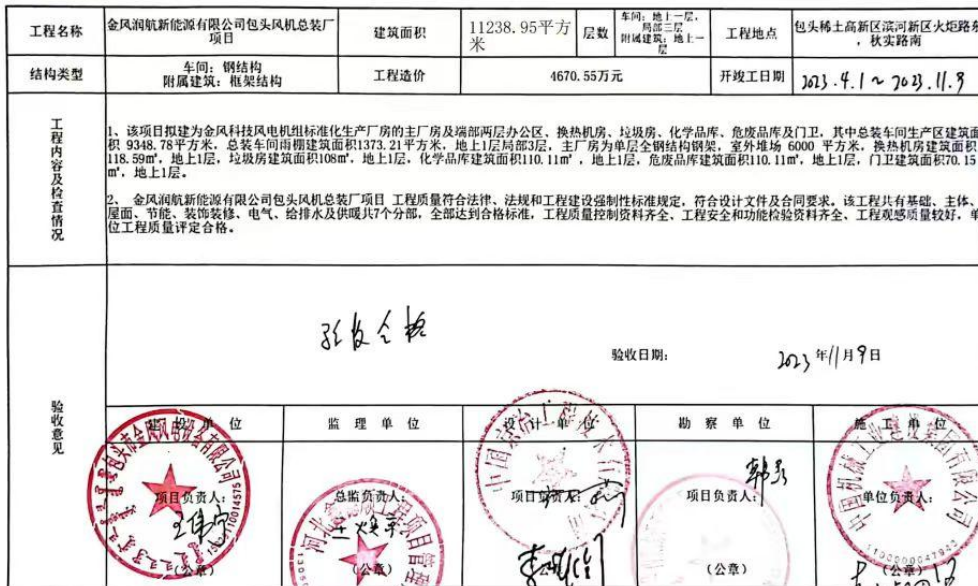 工程名称
金风润航新能源有限公司包头风机总装厂
项目
建筑面积
11238.95平方
米
层数
车间：地上一层，
局部三层
附属建筑：地上一
层
工程地点
包头稀土高新区滨河新区火炬路东
，秋实路南
结构类型
车间：钢结构
附属建筑：框架结构
工程造价
4670.55万元
开竣工日期
2023.4.1～2023.11.9
工程内容及检查情况
1、该项目拟建为金风科技风电机组标准化生产厂房的主厂房及端部两层办公区、换热机房、垃圾房、化学品库、危废品库及门卫，其中总装车间生产区建筑面
积 9348.78平方米，总装车间雨棚建筑面积1373.21平方米，地上1层局部3层，主厂房为单层全钢结构钢架，室外堆场 6000 平方米，换热机房建筑面积
118.59㎡，地上1层，垃圾房建筑面积108㎡，地上1层，化学品库建筑面积110.11㎡，地上1层，危废品库建筑面积110.11㎡，地上1层，门卫建筑面积70.15
㎡，地上1层。
2、 金风润航新能源有限公司包头风机总装厂项目 工程质量符合法律、法规和工程建设强制性标准规定，符合设计文件及合同要求。该工程共有基础、主体、
屋面、节能、装饰装修、电气、给排水及供暖共7个分部，全部达到合格标准，工程质量控制资料齐全、工程安全和功能检验资料齐全、工程观感质量较好，单
位工程质量评定合格。
验收意见
验收合格
验收日期：
2023 年11月9日
建设单位
监理单位
设计单位
勘察单位
施工单位
项目负责人：
总监负责人：
项目负责人：
项目负责人：
单位负责人：
（公章）
（公章）
（公章）
（公章）
（公章）